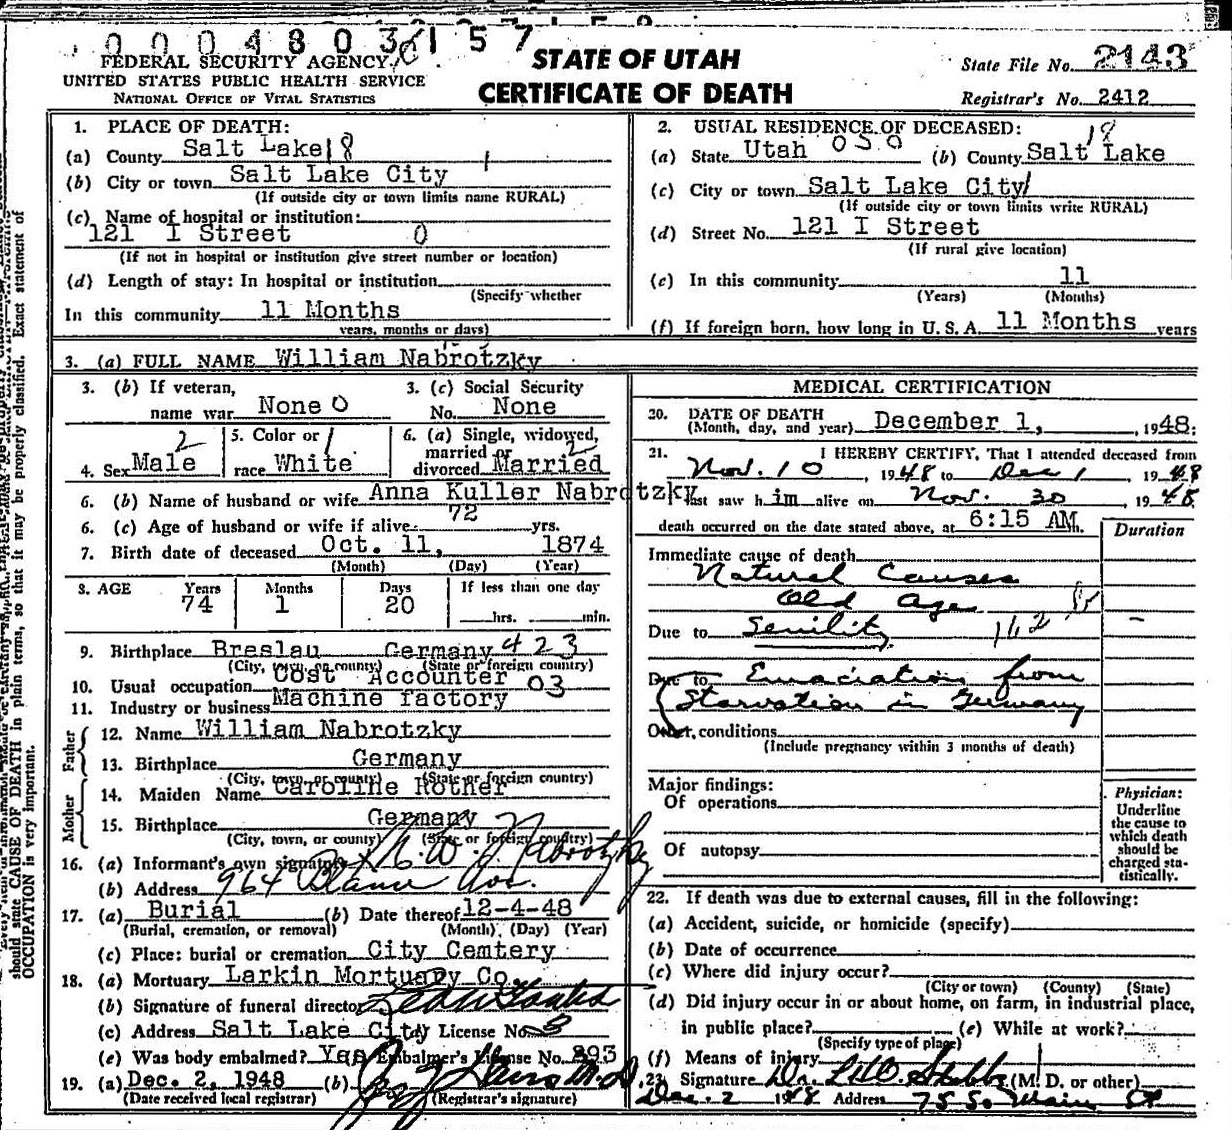 0 0 0 4 8 0 3 6 1 5 7
FEDERAL SECURITY AGENCY
UNITED STATES PUBLIC HEALTH SERVICE
NATIONAL OFFICE OF VITAL STATISTICS
STATE OF UTAH
CERTIFICATE OF DEATH
State File No. 2143
Registrar's No. 2412
1. PLACE OF DEATH:
(a) County Salt Lake 18
(b) City or town Salt Lake City
(If outside city or town limits name RURAL)
(c) Name of hospital or institution:
121 I Street 0
(If not in hospital or institution give street number or location)
(d) Length of stay: In hospital or institution
(Specify whether
In this community 11 Months
years, months or days)
2. USUAL RESIDENCE OF DECEASED:
(a) State Utah 050 (b) County Salt Lake 18
(c) City or town Salt Lake City
(If outside city or town limits write RURAL)
(d) Street No. 121 I Street
(If rural give location)
(e) In this community 11
(Years) (Months)
(f) If foreign born, how long in U. S. A. 11 Months years
3. (a) FULL NAME William Nabrotzky
3. (b) If veteran, name war None 0
3. (c) Social Security No. None
4. Sex Male 2
5. Color or race White
6. (a) Single, widowed, married or divorced Married 2
6. (b) Name of husband or wife Anna Kuller Nabrotzky
6. (c) Age of husband or wife if alive 72 yrs.
7. Birth date of deceased Oct. 11, 1874
(Month) (Day) (Year)
8. AGE Years Months Days If less than one day
74 1 20 hrs. min.
9. Birthplace Breslau Germany 423
(City, town, or county) (State or foreign country)
10. Usual occupation Cost Accounter 03
11. Industry or business Machine factory
Father
12. Name William Nabrotzky
13. Birthplace Germany
(City, town, or county) (State or foreign country)
Mother
14. Maiden Name Caroline Rother
15. Birthplace Germany
(City, town, or county) (State or foreign country)
16. (a) Informant's own signature W. Nabrotzky
(b) Address 964 Ave.
17. (a) Burial (b) Date thereof 12-4-48
(Burial, cremation, or removal) (Month) (Day) (Year)
(c) Place: burial or cremation City Cemtery
18. (a) Mortuary Larkin Mortuary Co.
(b) Signature of funeral director
(c) Address Salt Lake City (d) License No. 3
(e) Was body embalmed? Yes (f) Embalmer's License No. 393
19. (a) Dec. 2, 1948 (b) M.D.
(Date received local registrar) (Registrar's signature)
MEDICAL CERTIFICATION
20. DATE OF DEATH
(Month, day, and year) December 1, , 1948
21. I HEREBY CERTIFY, That I attended deceased from
Nov. 10, 1948 to Dec 1 1948
last saw him alive on Nov. 30 1948
death occurred on the date stated above, at 6:15 AM.
Duration
Immediate cause of death
Natural Causes
Old Age
Due to Senility 162
Due to Emaciation from
Starvation in Germany
Other conditions
(Include pregnancy within 3 months of death)
Major findings:
Of operations
Of autopsy
Physician:
Underline
the cause to
which death
should be
charged sta-
tistically.
22. If death was due to external causes, fill in the following:
(a) Accident, suicide, or homicide (specify)
(b) Date of occurrence
(c) Where did injury occur?
(City or town) (County) (State)
(d) Did injury occur in or about home, on farm, in industrial place,
in public place? (e) While at work?
(Specify type of place)
(f) Means of injury
23. Signature Dr. (M. D. or other)
Dec. 2 1948 Address 75 So Main St
should state CAUSE OF DEATH in plain terms, so that it may be properly classified. Exact statement of
OCCUPATION is very important.